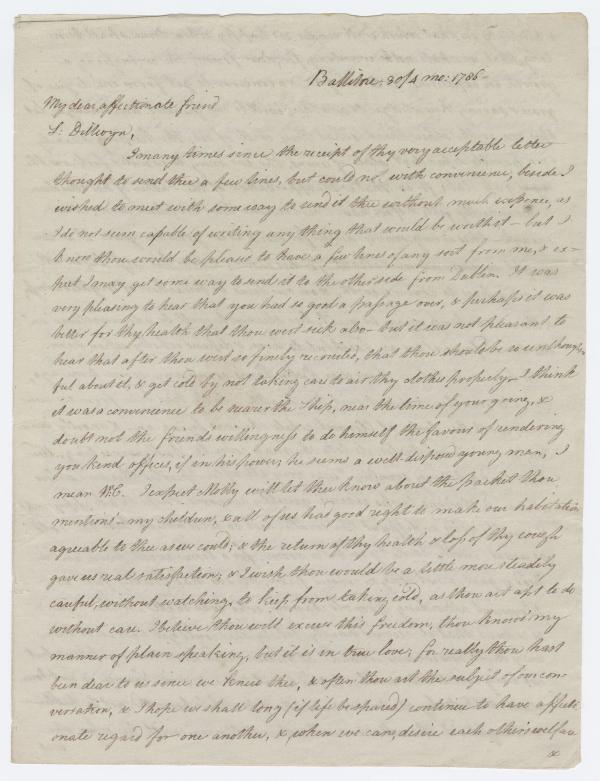 Ballitore, 30/4 mo: 1786
My dear affectionate friend
S: Dillwyn,
I many times since the receipt of thy very acceptable letter
thought to send thee a few lines, but could not with convenience, beside I
wished to meet with some way to send it thee without much expence, as
I do not seem capable of writing any thing that would be worth it – but I
know thou would be pleased to have a few lines of any sort from me, & ex-
pect I may get some way to send it to the other side from Dublin. It was
very pleasing to hear that you had so good a passage over, & perhaps it was
better for thy health that thou wert sick also – but it was not pleasant to
hear that after thou wert so finely recruited, that thou should be so unthought-
ful about it, & get cold by not taking care to air thy clothes properly – I think
it was a convenience to be nearer the Ship, near the time of your going, &
doubt not the friend's willingness to do himself the favour of rendering
you kind offices, if in his power; he seems a well-disposed young man, I
mean W:C. I expect Molly will let thee know about the packet thou
mentions – my children, & all of us had good right to make our habitation
agreeable to thee as we could; & the return of thy health & loss of thy cough
gave us real satisfaction; & I wish thou would be a little more steadily
careful, without watching, to keep from taking cold, as thou art apt to do
without care. I believe thou will excuse this freedom, thou knows my
manner of plain speaking, but it is in true love; for really thou hast
been dear to us since we knew thee, & often thou art the subject of our con-
versation, & I hope we shall long (if life be spared) continue to have affecti-
onate regard for one another, & when we can, desire each other's welfare
&